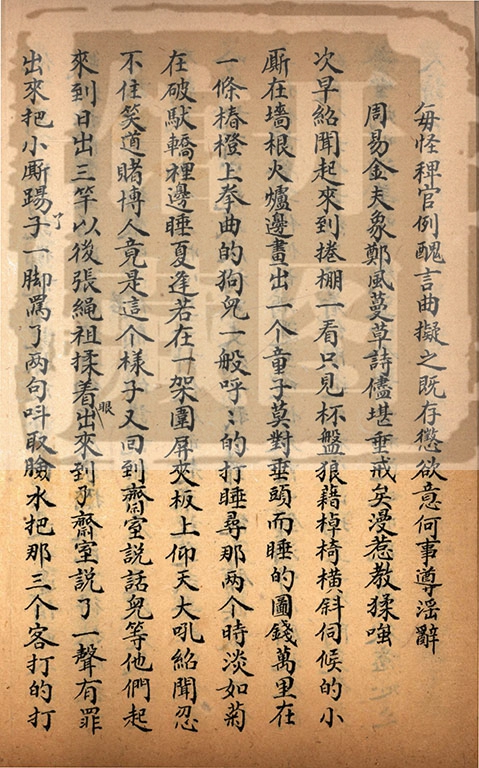 每怪稗官例醜言曲擬之既存懲欲意何事導淫辭
周易金夫象鄭風蔓草詩儘堪垂戒矣漫惹教猱嗤
次早紹聞起來到捲棚一看只見杯盤狼藉棹椅橫斜伺候的小
厮在墻根火爐邊畫出一个童子莫對垂頭而睡的圖錢萬里在
一條樁橙上拳曲的狗兒一般呼〻的打睡尋那两个時淡如菊
在破馱轎裡邊睡夏逢若在一架圍屏夾板上仰天大吼紹聞忍
不住笑道賭博人竟是這个樣子又回到齋室說話兒等他們起
來到日出三竿以後張繩祖揉着眼出來到了齋室說了一聲有罪
出來把小厮踢了子一脚罵了两句呌取臉水把那三个客打的打